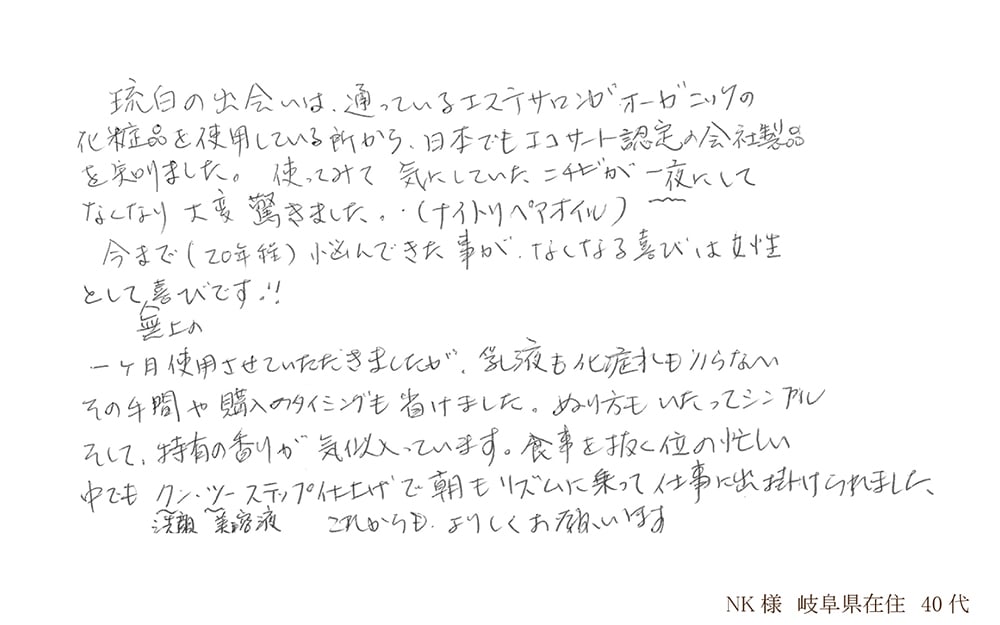 琉白の出会いは、通っているエステサロンがオーガニックの
化粧品を使用している所から、日本でもエコサート認定の会社製品
を知りました。使ってみて気にしていたニキビが一夜にして
なくなり大変驚きました。・(ナイトリペアオイル)
今まで(20年程)悩んできた事が、なくなる喜びは女性
として喜びです!!
無上の
一ヶ月使用させていただきましたが、乳液も化粧水もいらない
その手間や購入のタイミングも省けました。ぬり方もいたってシンプル
そして、特有の香りが気似入っています。食事を抜く位の忙しい
中でもワン・ツーステップ仕上げで朝もリズムに乗って仕事に出掛けられました、
洗顔 美容液 これからも、よりしくお願いします
NK様 岐阜県在住 40代